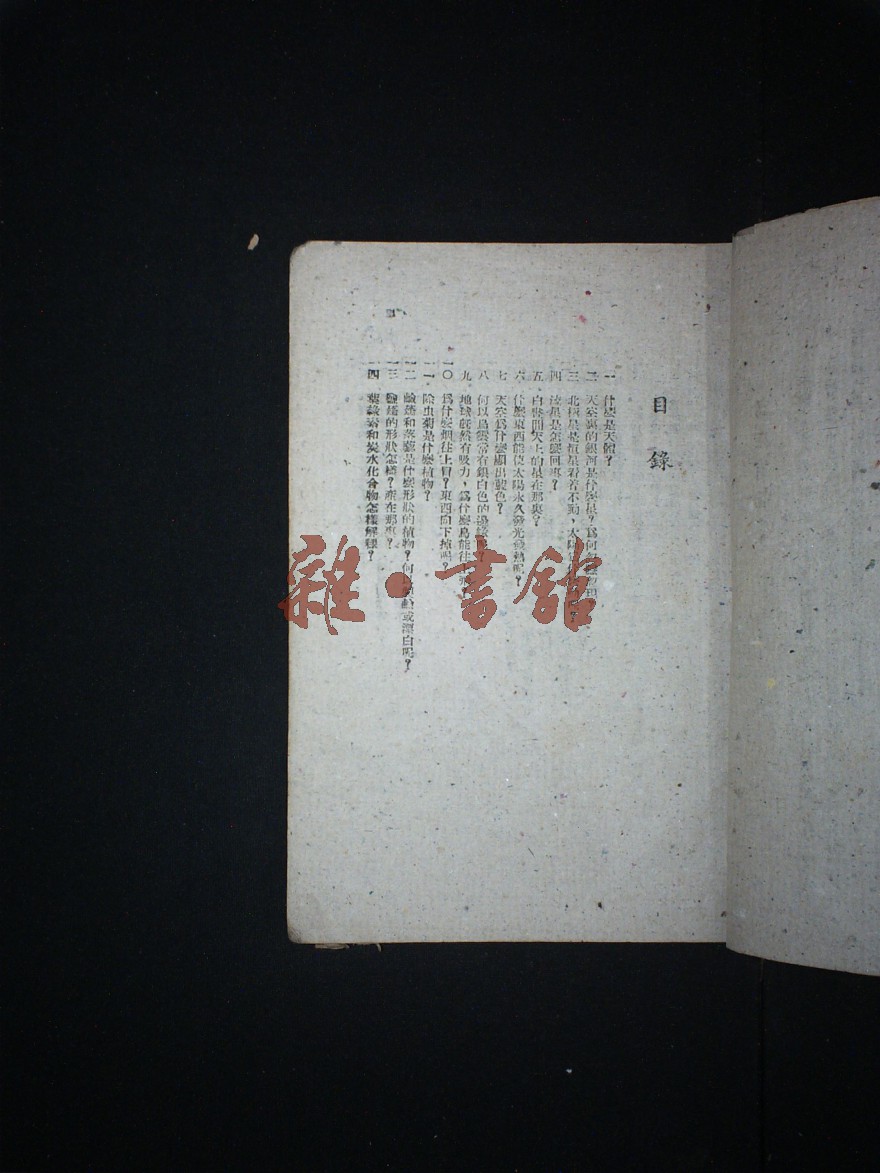 目錄
一 什麼是天體？
二 天空裏的銀河是什麼星？爲何
三 北極星是恒星看着不動，太陽
四 星是怎麼回事？
五 白晝間天上的星在那裏？
六 什麼東西能使太陽永久發光發熱呢？
七 天空爲什麼顯出藍色？
八 何以烏雲常有銀白色的邊緣呢？
九 地球旣然有吸力，爲什麼鳥能往
一〇 爲什麼烟往上冒？東西向下掉呢？
一一 除虫菊是什麼植物？
一二 和落藜是什麼形狀的植物？何 或漂白呢？
一三 的形狀怎樣？產在那裏？
一四 葉綠素和炭水化合物怎樣解釋？
雜·書館